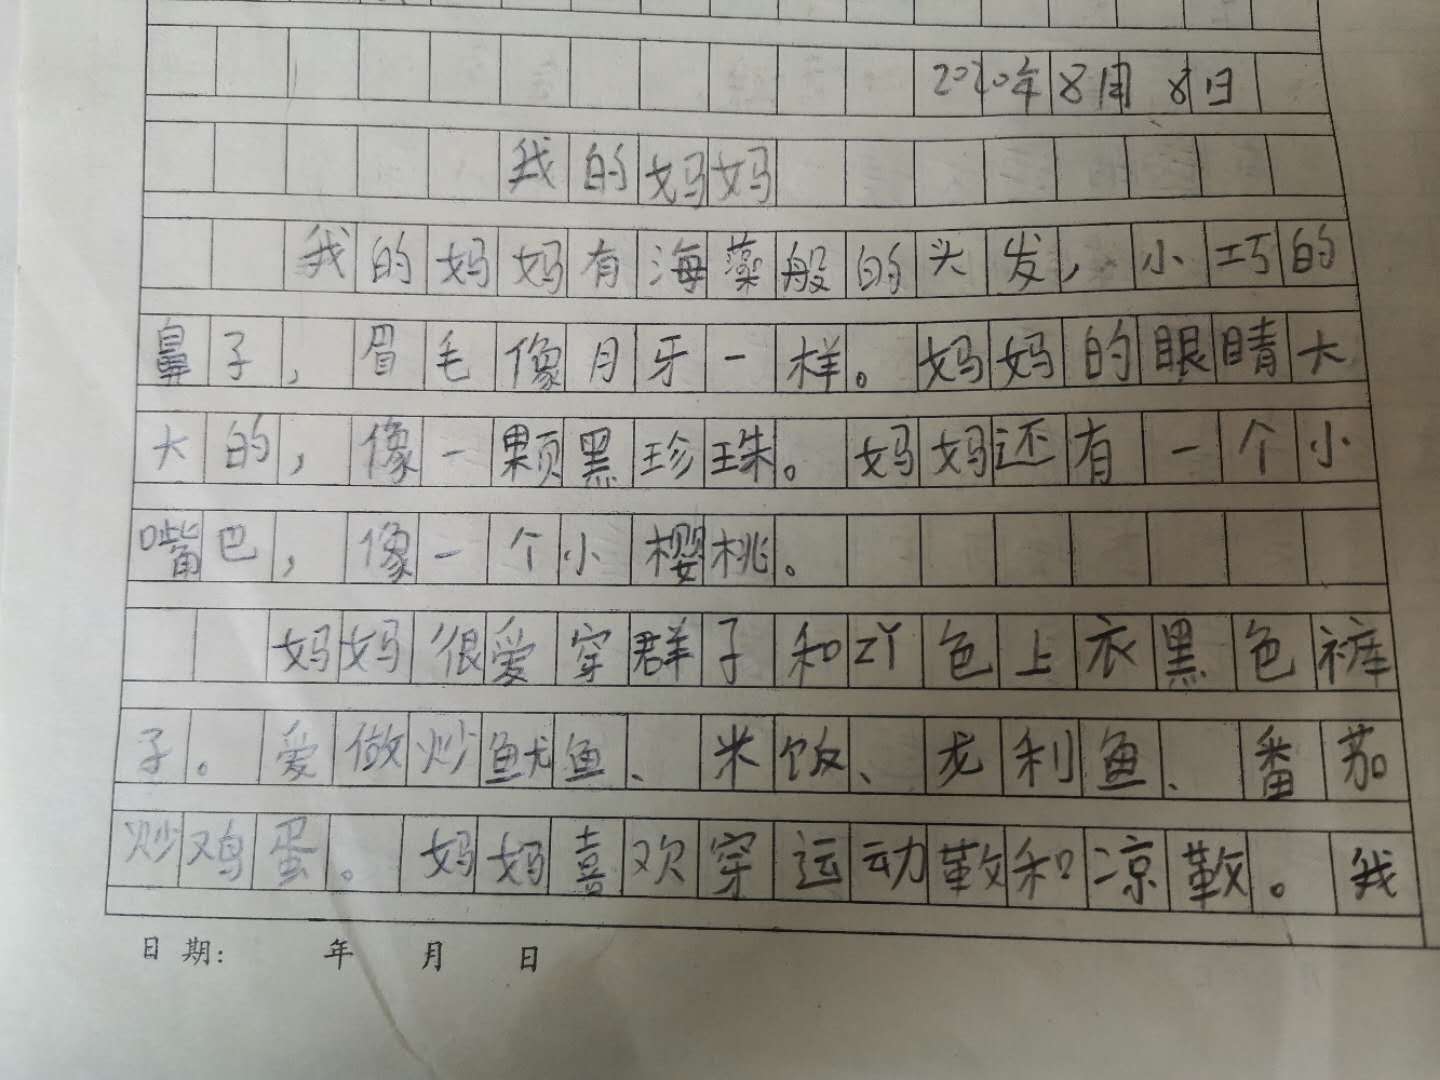 2020年8月8日
我的妈妈
我的妈妈有海藻般的头发，小巧的
鼻子，眉毛像月牙一样。妈妈的眼睛大
大的，像一颗黑珍珠。妈妈还有一个小
嘴巴，像一个小樱桃。
妈妈很爱穿群子和色上衣黑色裤
子。爱做炒鱿鱼、米饭、龙利鱼、番茄
炒鸡蛋。妈妈喜欢穿运动和凉。我
日期： 年 月 日